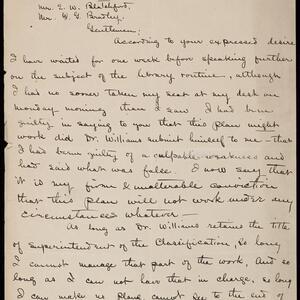 Mr. E. W. Blatchford,
Mr. W. G. Bradley,
Gentlemen:
According to your expressed desire
I have waited for one week before speaking further
on the subject of the library routine, although
I had no sooner taken my seat at my desk on
Monday morning than I saw I had been
guilty in saying to you that this plan might
work did Dr. Williams submit himself to me – that
I had been guilty of a culpable weakness and
had said what was false. I now say that
it is my firm & unalterable conviction
that this plan will not work under any
circumstances whatever –
As long as Dr. Williams retains the title
of Superintendent of the Classification, so long
I cannot manage that part of the work. And so
long as I can not have that in charge, so long
I can make no plans, cannot see to the end of